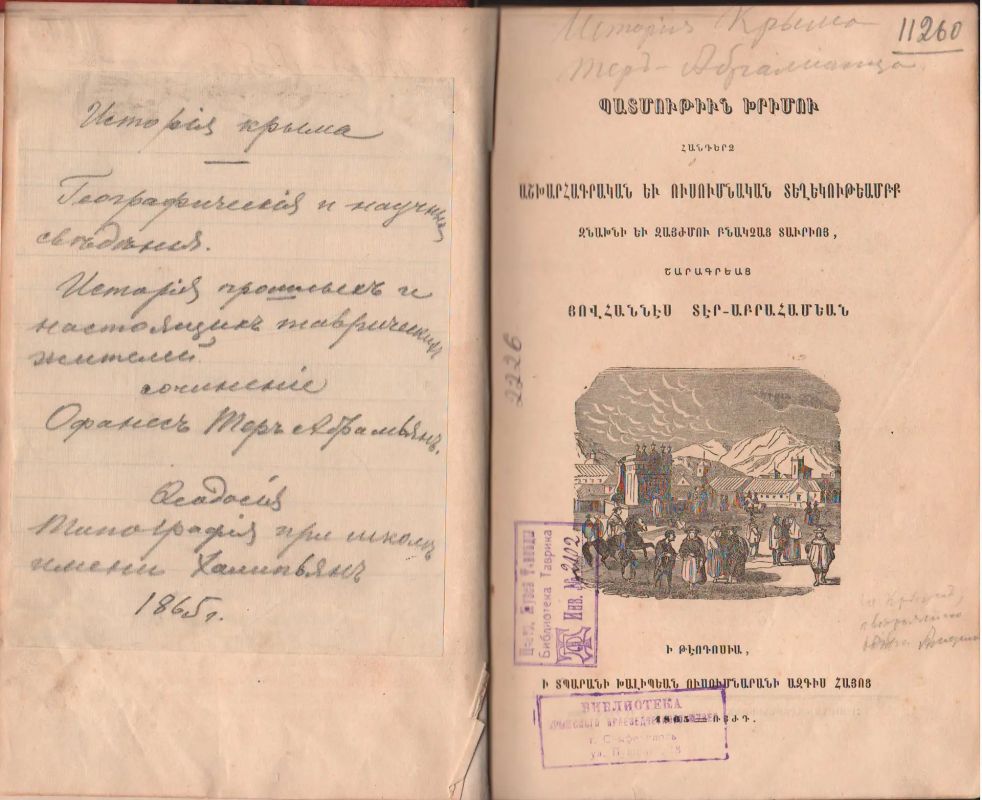 Исторія крыма
Географическія и научныя
свѣдѣнія.
Исторія прошлыхъ и
настоящихъ таврическихъ
жителей
сочиненіе
Офанесъ Теръ Абрамьянъ.
Ѳеодосія
Типографія при школѣ
имени Халипьянъ
1865 г.
11260
Исторія Крыма
Теръ-Абрамианца
ՊԱՏՄՈՒԹԻՒՆ ԽՐԻՄՈՒ
ՀԱՆԴԵՐՁ
ԱՇԽԱՐՀԱԳՐԱԿԱՆ ԵՒ ՈՒՍՈՒՄՆԱԿԱՆ ՏԵՂԵԿՈՒԹԵԱՄԲՔ
ԶՆԱԽՆԻ ԵՒ ԶԱՅԺՄՈՒ ԲՆԱԿՉԱՑ ՏԱՒՐԻՈՅ,
ՇԱՐԱԳՐԵԱՑ
ՅՈՎՀԱՆՆԷՍ ՏԷՐ-ԱԲՐԱՀԱՄԵԱՆ
2226
Библиотека Таврика
Инв. № 2102
Ի ԹԷՈԴՈՍԻԱ,
Ի ՏՊԱՐԱՆԻ ԽԱԼԻՊԵԱՆ ՈՒՍՈՒՄՆԱՐԱՆԻ ԱԶԳԻՍ ՀԱՅՈՑ
1865—ՌՅԺԴ.
БИБЛИОТЕКА
г. Симферополь
ул.